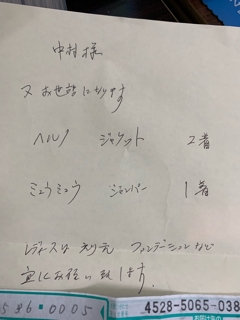 中村様
又お世話になります
ヘルノ ジャケット 2着
ミュウミュウ ジャンパー 1着
レディースは えり元 ファンデーションなど
宜しくお願い致します。
4528-5065-038
536-0005